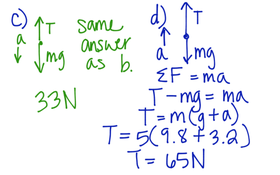 c)
T
a
mg
same
answer
as b.
33N
d)
T
a
mg
ΣF = ma
T - mg = ma
T = m(g+a)
T = 5(9.8 + 3.2)
T = 65N